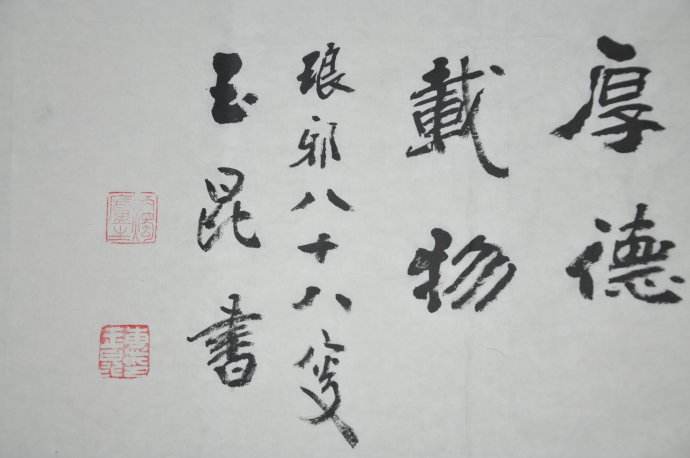 厚德
載物
琅邪八十八叟
玉昆书